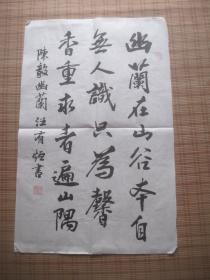 幽蘭在山谷本自
無人識只為馨
香重求者遍山隅
陳毅幽蘭汪有恒書